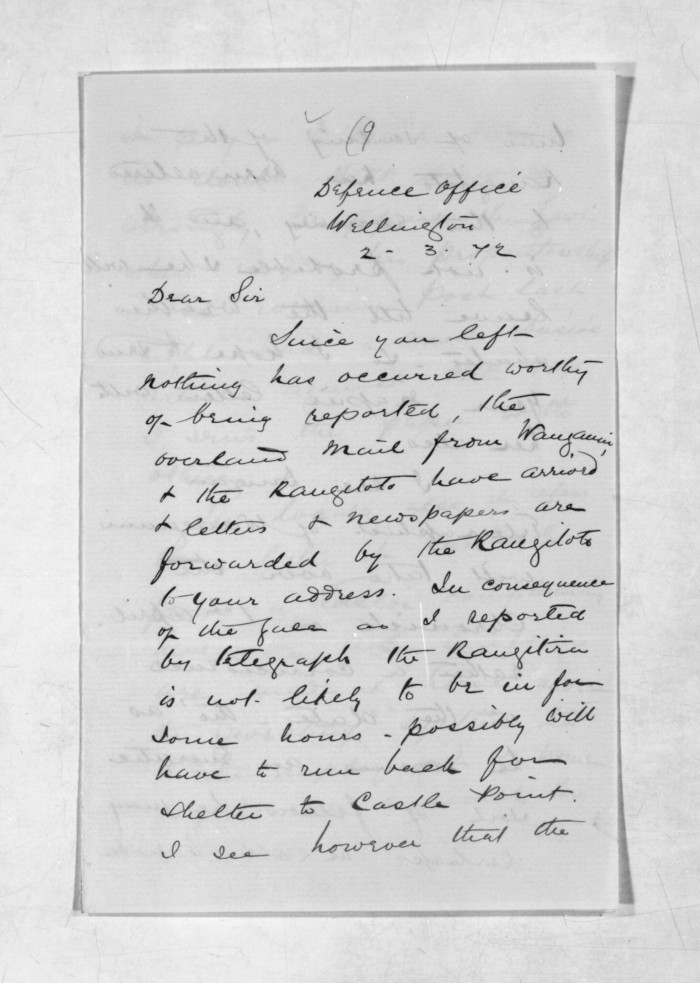 (9
Defence Office
Wellington
2 - 3. 72
Dear Sir
Since you left
nothing has occurred worthy
of being reported, the
overland Mail from Wanganui,
& the Rangitoto have arrived
& letters & newspapers are
forwarded by the Rangitoto
to your address. In consequence
of the gale as I reported
by telegraph the Rangitira
is not likely to be in for
some hours - possibly will
have to run back for
shelter to Castle Point.
I see however that the